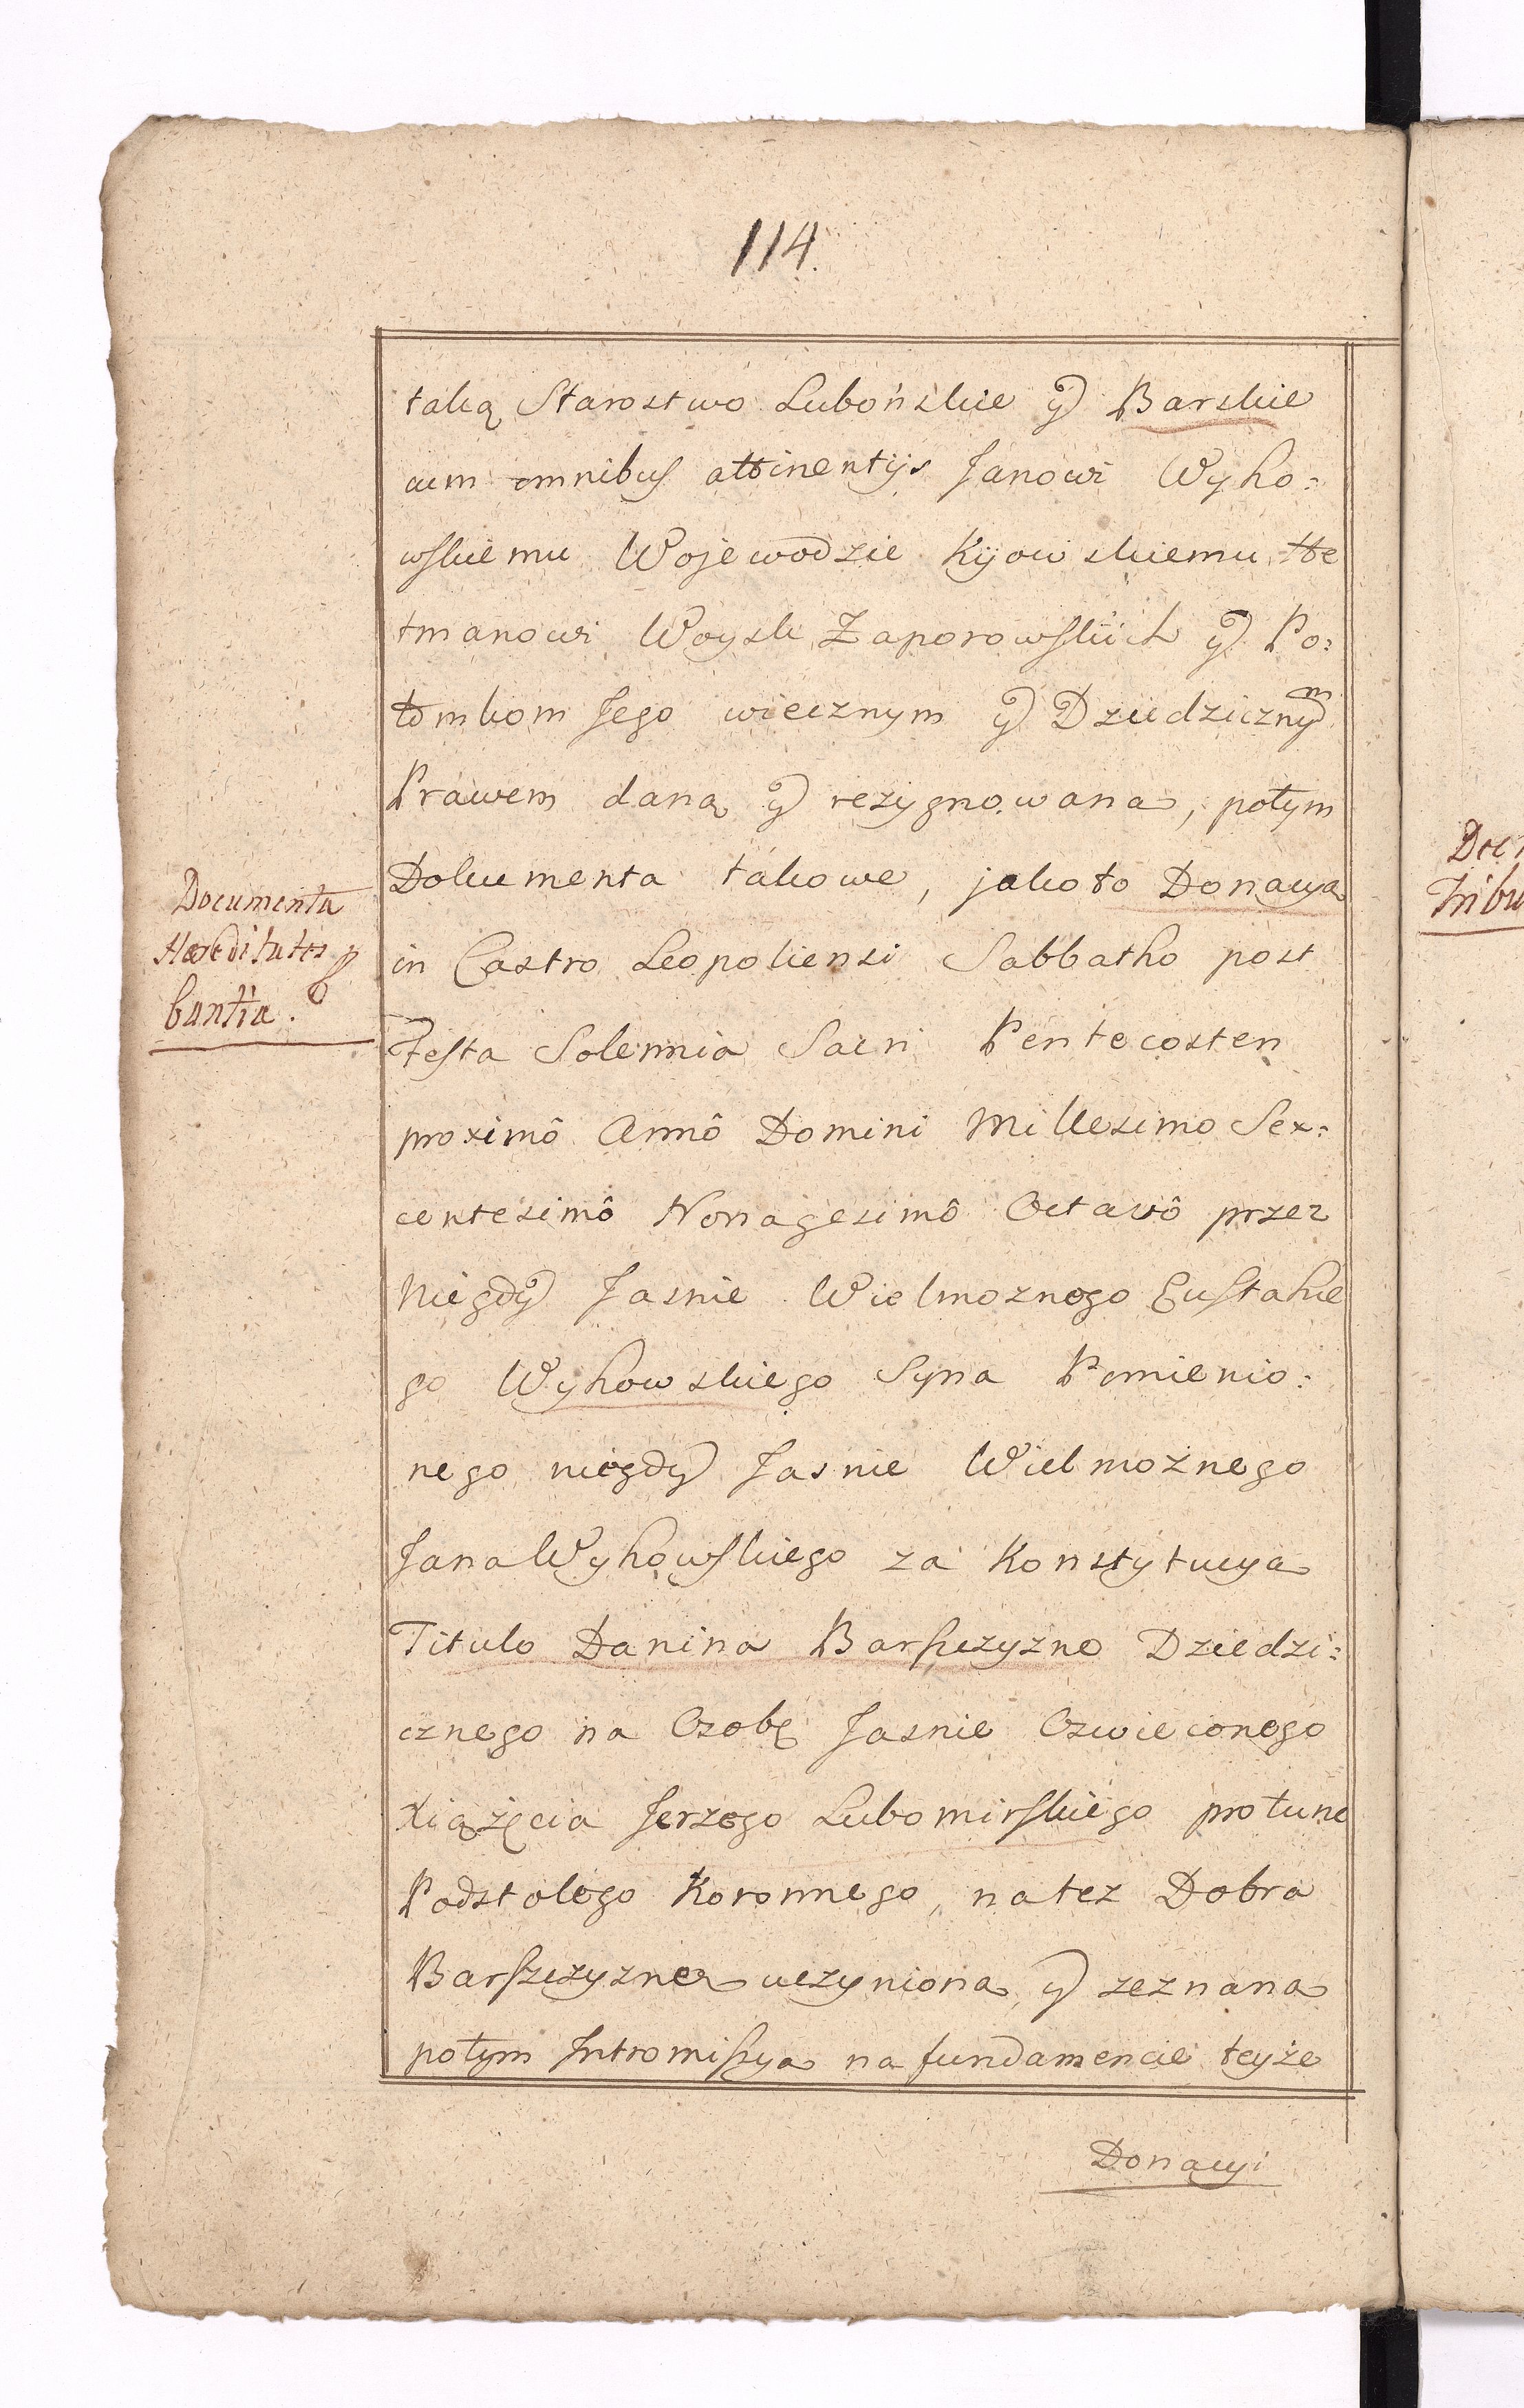 114.
taką Starostwo Lubońskie y Barskie
cum omnibus attinentijs Janowi Wyho:
wskiemu Wojewodzie Kijowskiemu He
tmanowi Woysk Zaporowskiich y Po:
tomkom Jego wiecznym y Dziedzicznym
Prawem daną y rezygnowana, potym
Documenta
Hæreditates pro
bantia.
Dokumenta takowe, jako to Donacya
in Castro Leopoliensi Sabbatho post
Festa Solennia Sacri Pentecosten
proximô Annô Domini Millesimo Sex:
centesimô Nonagesimô Octavô przez
Niegdy Jasnie Wielmoznego Eustahie
go Wyhowskiego Syna Pomienio:
nego niegdy Jasnie Wielmożnego
Jana Wyhowskiego za Konstytucya
Titulo Danina Barszczyzne Dziedzi:
cznego na Osobę Jasnie Oswieconego
Xiążęcia Jerzego Lubomirskiego protunc
Podstolego Koronnego, na tez Dobra
Barszczyzner uczyniona y zeznana
potym Intromissya na fundamencie teyże
Donacyi
Tribu